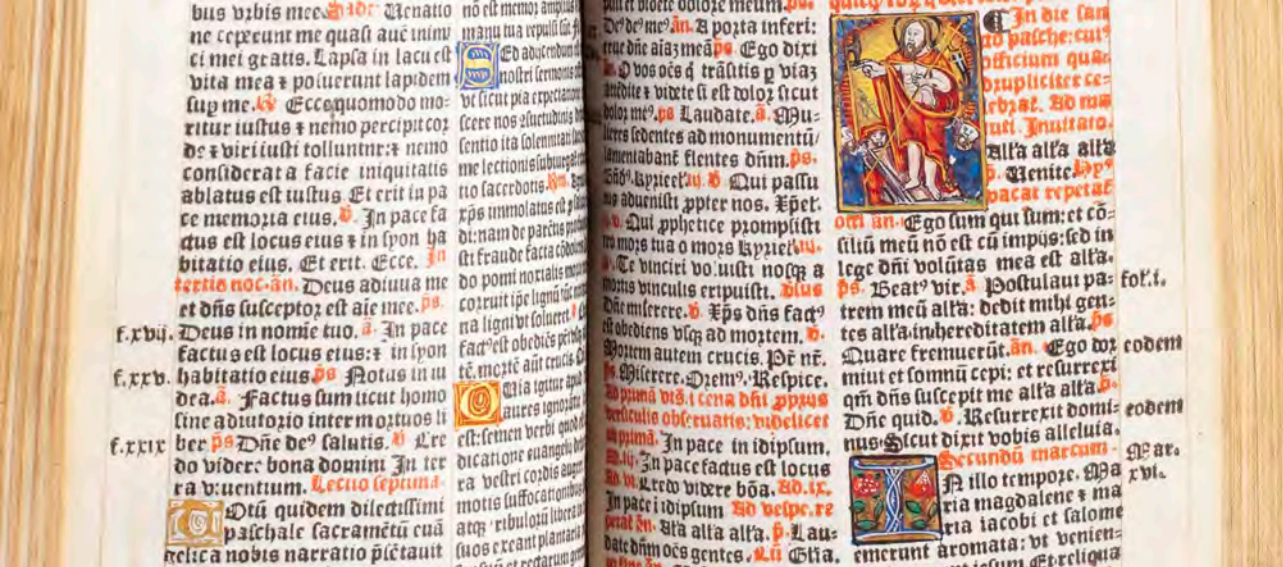 bus vrbis mee. Venatio
ne ceperunt me quasi aue inimi
ci mei gratis. Lapsa in lacu est
f.xvij.
f.xxv.
f.xxix
vita mea ⁊ posuerunt lapidem
sup me. Ecce quomodo mo:
ritur iustus ⁊ nemo percipit cor
de ⁊ viri iusti tolluntur:⁊ nemo
considerat a facie iniquitatis
ablatus est iustus Et erit in pa
ce memoria eius. v. In pace fa
ctus est locus eius ⁊ in syon ha
bitatio eius. Et erit. Ecce. In
tertio noc. an. Deus adiuua me
et dns susceptor est aie mee. ps.
Deus in nomie tuo. a. In pace
factus est locus eius:⁊ in syon
habitatio eius. ps Notus in iu
dea. a. Factus sum sicut homo
sine adiutorio inter mortuos li
ber ps Dne deꝰ salutis. v Cre
do videre bona domini In ter
ra viuentium. Lectio septima.
Totū quidem dilectissimi
paschale sacrametū euā
gelica nobis narratio
no est memor amplius
manu tua repulsi sunt
Sed adijcendum
nostri sermonis
vt sicut pia expectatio
scere nos
sentio ita solennitati
me lectionis subiungat
tio sacerdotis.
xps immolatus est
di:nam de parētis
sti fraude facta
do pomi noxialis
corruit ipe lignū
na ligni vt solueret.
factꝰ est obediēs
tē.mortē aūt crucis
Quia igitur
aures
est:semen verbi quod
dicatione euangelij
ra vestri cordis
motis suffocationibus
atqꝫ tribulorū
suos exeant
et videte dolorem meum. ps.
Deꝰ deꝰ meꝰ. an. A porta inferi:
erue dne aiaꝫ meā ps. Ego dixi
O vos oēs q̄ trāsitis p viaꝫ
attēdite ⁊ videte si est dolor sicut
dolor meꝰ. ps Laudate. a. Mu:
lieres sedentes ad monumentū
lamentabant flentes dnm. ps.
Kyrieel. iij. v Qui passu
rus aduenisti ppter nos. Xpet.
v. Qui pphetice prompsisti
ero mors tua o mors kyriel.
v. Te vinciri voluisti nosqꝫ a
mortis vinculis eripuisti.
Dne miserere. v. Xps dns factꝰ
est obediens vsqꝫ ad mortem. v.
Mortem autem crucis. Pr nr.
ps. Miserere. Oremꝰ. Respice.
Ad primā vt s. i cena dni pprijs
versiculis obseruatis: videlicet
Ad primā. In pace in idipsum.
Ad iij. In pace factus est locus
Ad vi. Credo videre bōa. Ad ix.
In pace i idipsum Ad vespe. re
petat an. Alla alla alla. p. Lau:
date dnm oēs gentes. Glia.
In die san
cto pasche: cuiꝰ
officium qua
drupliciter ce:
lebrat. Ad ma
tuti. Inuitato.
Alla alla alla
p. Venite. Hyꝰ
vacat repetat
an. Ego sum qui sum:et cō:
siliū meū nō est cū impijs:sed in
lege dni volūtas mea est alla.
ps. Beatꝰ vir. a Postulaui pa:
fol. i.
trem meū alla: dedit mihi gen:
tes alla.in hereditatem alla. ps
Quare fremuerūt. an. Ego dor
eodem
miui et somnū cepi: et resurrexi
qm dns suscepit me alla alla. p.
Dne quid. v. Resurrexit domi:
eodem
nus Sicut dixit vobis alleluia.
Secundū marcum.
Mar.
xvi.
IN illo tempore. Ma
ria magdalene ⁊ ma
ria iacobi et salome
emerunt aromata: vt venien:
iesum Et reliqua